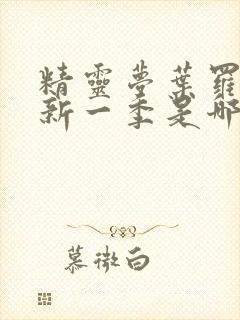 精靈夢葉羅
新一季是哪
慕微白